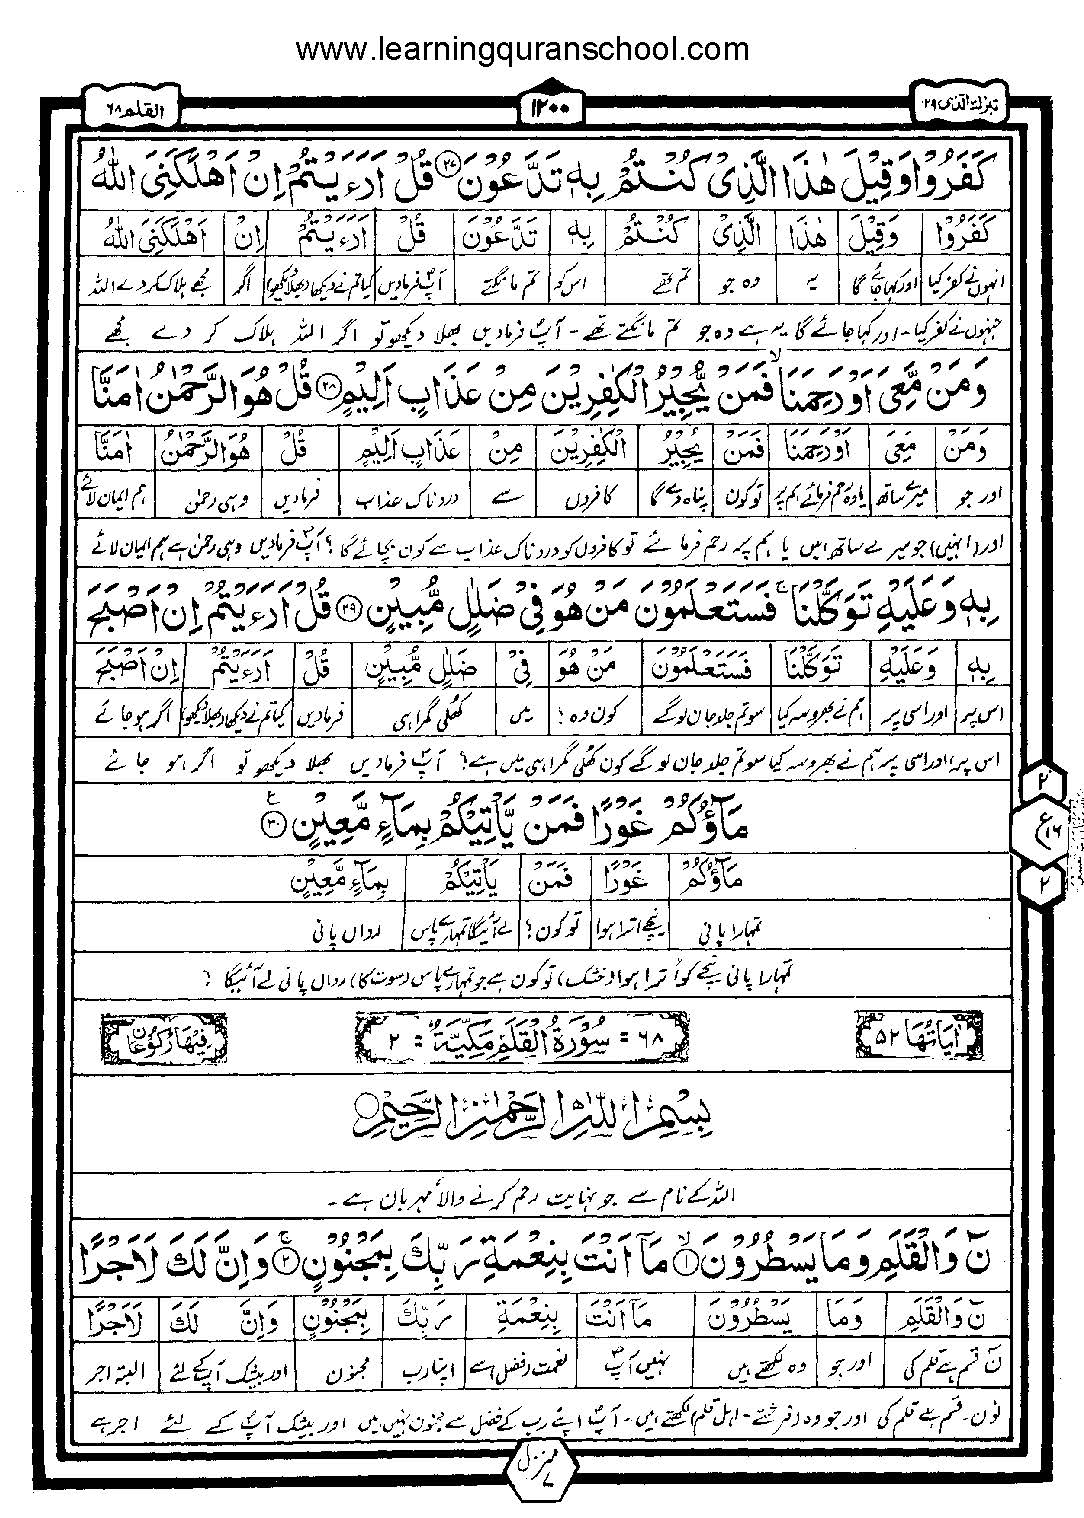 www.learningquranschool.com
تبٰرك الذی ۲۹
۱۲۰۰
القلم ۶۸
كَفَرُوْا وَقِیْلَ هٰذَا الَّذِیْ كُنْتُمْ بِهٖ تَدَّعُوْنَ ۲۷ قُلْ اَرَءَیْتُمْ اِنْ اَهْلَكَنِیَ اللّٰهُ
كَفَرُوْا وَقِیْلَ هٰذَا الَّذِیْ كُنْتُمْ بِهٖ تَدَّعُوْنَ قُلْ اَرَءَیْتُمْ اِنْ اَهْلَكَنِیَ اللّٰهُ
انہوں نے کفر کیا اور کہا جائے گا یہ وہ جو تم تھے اس کو تم مانگتے آپؐ فرمادیں کیا تم نے دیکھا (بھلا دیکھو) اگر مجھے ہلاک کر دے اللہ
جنہوں نے کفر کیا۔ اور کہا جائے گا یہ ہے وہ جو تم مانگتے تھے۔ آپؐ فرمادیں بھلا دیکھو تو اگر اللہ ہلاک کر دے مجھے
وَمَنْ مَّعِیَ اَوْ رَحِمَنَا ۙ فَمَنْ یُّجِیْرُ الْكٰفِرِیْنَ مِنْ عَذَابٍ اَلِیْمٍ ۲۸ قُلْ هُوَ الرَّحْمٰنُ اٰمَنَّا
وَمَنْ مَّعِیَ اَوْ رَحِمَنَا فَمَنْ یُّجِیْرُ الْكٰفِرِیْنَ مِنْ عَذَابٍ اَلِیْمٍ قُلْ هُوَ الرَّحْمٰنُ اٰمَنَّا
اور جو میرے ساتھ یا وہ رحم فرمائے ہم پر تو کون پناہ دے گا کافروں سے دردناک عذاب فرمادیں وہی رحمٰن ہم ایمان لائے
اور (انہیں) جو میرے ساتھ ہیں یا ہم پر رحم فرمائے تو کافروں کو دردناک عذاب سے کون بچائے گا؟ آپؐ فرمادیں وہی رحمٰن ہے ہم ایمان لائے
بِهٖ وَعَلَیْهِ تَوَكَّلْنَا ۚ فَسَتَعْلَمُوْنَ مَنْ هُوَ فِیْ ضَلٰلٍ مُّبِیْنٍ ۲۹ قُلْ اَرَءَیْتُمْ اِنْ اَصْبَحَ
بِهٖ وَعَلَیْهِ تَوَكَّلْنَا فَسَتَعْلَمُوْنَ مَنْ هُوَ فِیْ ضَلٰلٍ مُّبِیْنٍ قُلْ اَرَءَیْتُمْ اِنْ اَصْبَحَ
اس پر اور اسی پر ہم نے بھروسہ کیا سو تم جلد جان لوگے کون وہ؟ میں کھلی گمراہی فرمادیں کیا تم نے دیکھا (بھلا دیکھو) اگر ہو جائے
اس پر، اور اسی پر ہم نے بھروسہ کیا سو تم جلد جان لوگے کون کھلی گمراہی میں ہے؟ آپؐ فرمادیں بھلا دیکھو تو اگر ہو جائے
مَآؤُكُمْ غَوْرًا فَمَنْ یَّاْتِیْكُمْ بِمَآءٍ مَّعِیْنٍ ۳۰ ع
۲
ع ۱۶
۲
مَآؤُكُمْ غَوْرًا فَمَنْ یَّاْتِیْكُمْ بِمَآءٍ مَّعِیْنٍ
تمہارا پانی نیچے اترا ہوا تو کون؟ لے آئیگا تمہارے پاس رواں پانی
تمہارا پانی نیچے کو اُترا ہوا (خشک) تو کون ہے جو تمہارے پاس (سوت کا) رواں پانی لے آئیگا؟
اٰیَاتُهَا ۵۲
۶۸ = سُوْرَةُ الْقَلَمِ مَكِّیَّةٌ = ۲
فِیْهَا رُكُوْعَانِ
بِسْمِ اللّٰهِ الرَّحْمٰنِ الرَّحِیْمِ
اللہ کے نام سے جو نہایت رحم کرنے والا مہربان ہے۔
نٓ وَالْقَلَمِ وَمَا یَسْطُرُوْنَ ۙ ۱ مَآ اَنْتَ بِنِعْمَةِ رَبِّكَ بِمَجْنُوْنٍ ۚ ۲ وَاِنَّ لَكَ لَاَجْرًا
نٓ وَالْقَلَمِ وَمَا یَسْطُرُوْنَ مَآ اَنْتَ بِنِعْمَةِ رَبِّكَ بِمَجْنُوْنٍ وَاِنَّ لَكَ لَاَجْرًا
نٓ قسم ہے قلم کی اور جو وہ لکھتے ہیں نہیں آپؐ نعمت (فضل) سے اپنا رب مجنون اور بیشک آپ کے لئے البتہ اجر
نون۔ قسم ہے قلم کی اور جو وہ (فرشتے۔ اہل قلم) لکھتے ہیں۔ آپؐ اپنے رب کے فضل سے مجنون نہیں ہیں اور بیشک آپؐ کے لئے اجر ہے
منزل ۷